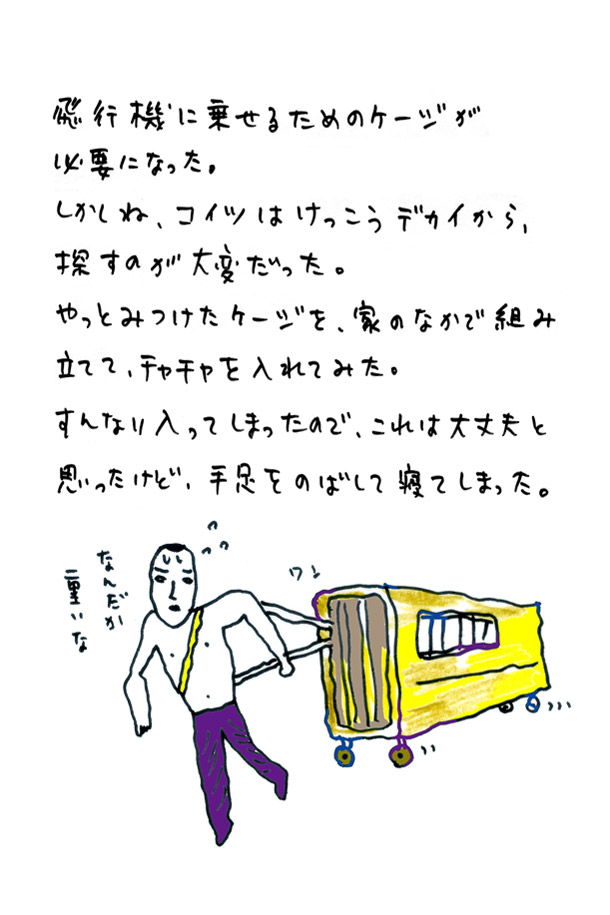 飛行機に乗せるためのケージが
必要になった。
しかしね、コイツはけっこうデカイから、
探すのが大変だった。
やっとみつけたケージを、家のなかで組み
立てて、チャチャを入れてみた。
すんなり入ってしまったので、これは大丈夫と
思ったけど、手足をのばして寝てしまった。
なんだか
重いな
ワン